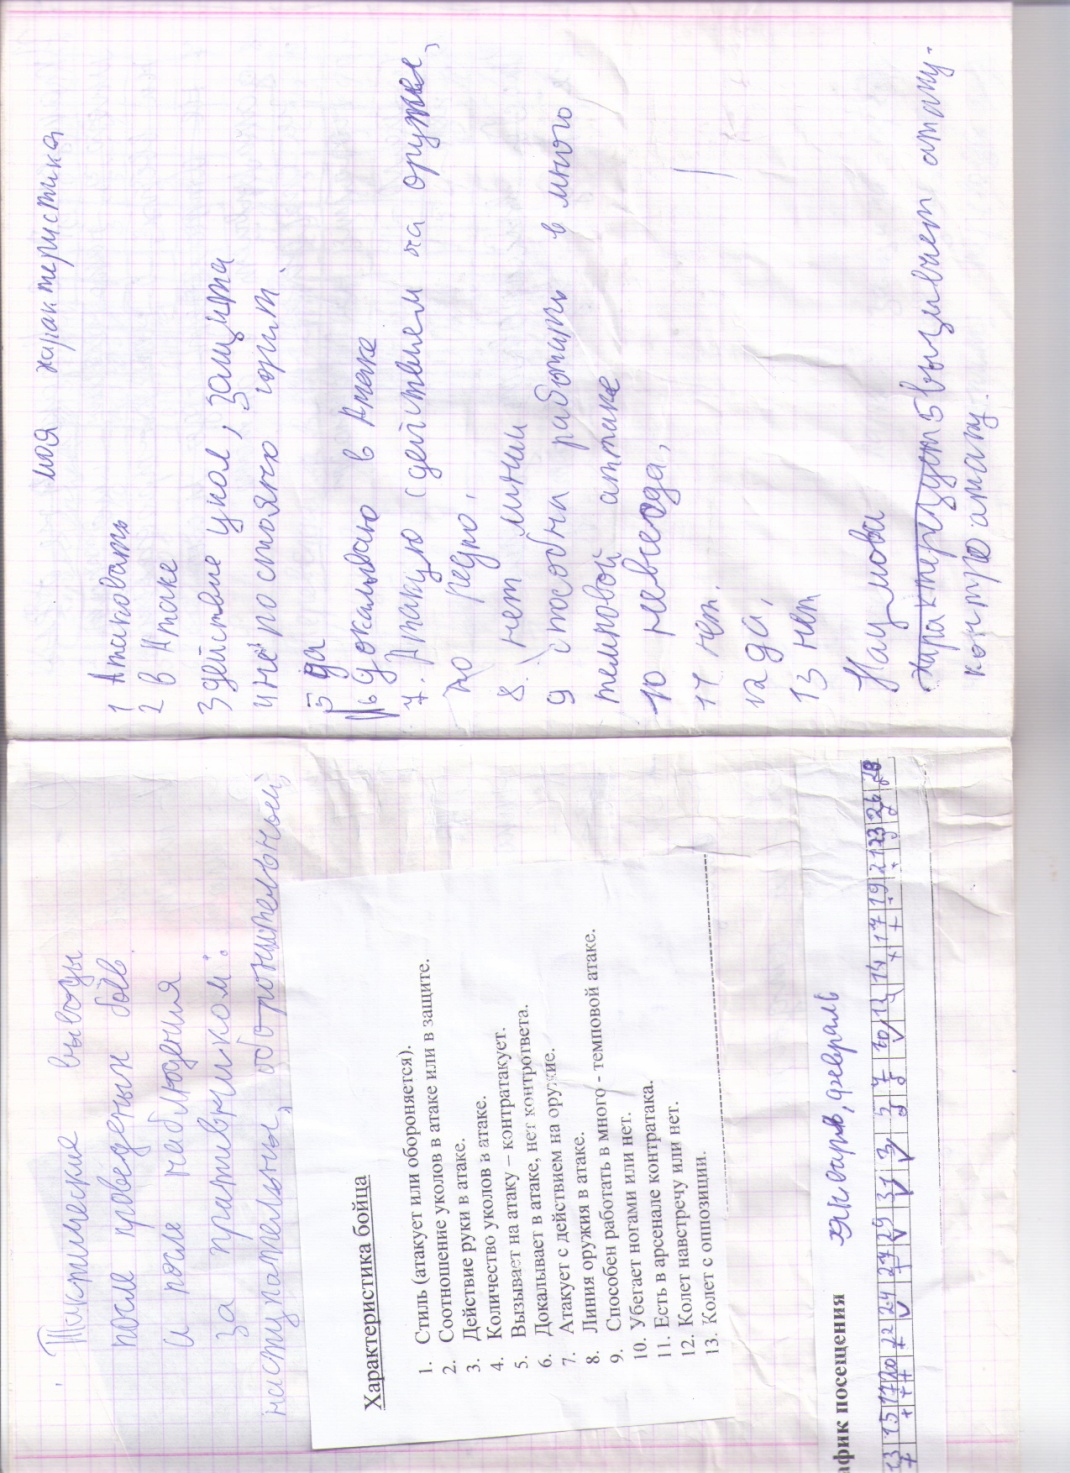 Тактические выводы
после проведеных боёв
и после наблюдения
за противником:
наступательный, оборонительный,
Характеристика бойца
1. Стиль (атакует или обороняется).
2. Соотношение уколов в атаке или в защите.
3. Действие руки в атаке.
4. Количество уколов в атаке.
5. Вызывает на атаку – контратакует.
6. Докалывает в атаке, нет контрответа.
7. Атакует с действием на оружие.
8. Линия оружия в атаке.
9. Способен работать в много - темповой атаке.
10. Убегает ногами или нет.
11. Есть в арсенале контратака.
12. Колет навстречу или нет.
13. Колет с оппозиции.
афик посещения январь, февраль
13 15 17 20 22 24 27 29 31 3 5 7 10 12 14 17 19 21 23 26 28
моя характеристика
1 Атаковать
2 в Атаке
3 действие укол, защита
4 не постоянно
5 да
6 докалываю в Атаке
7. Атакую с действием на оружие,
но редко.
8. нет линии
9 способна работать в много
темповой аттаке
10 не всегда,
11 нет.
12 да,
13 нет
Наумова
Характеризует 5 вызывает атаку.
контратаку.